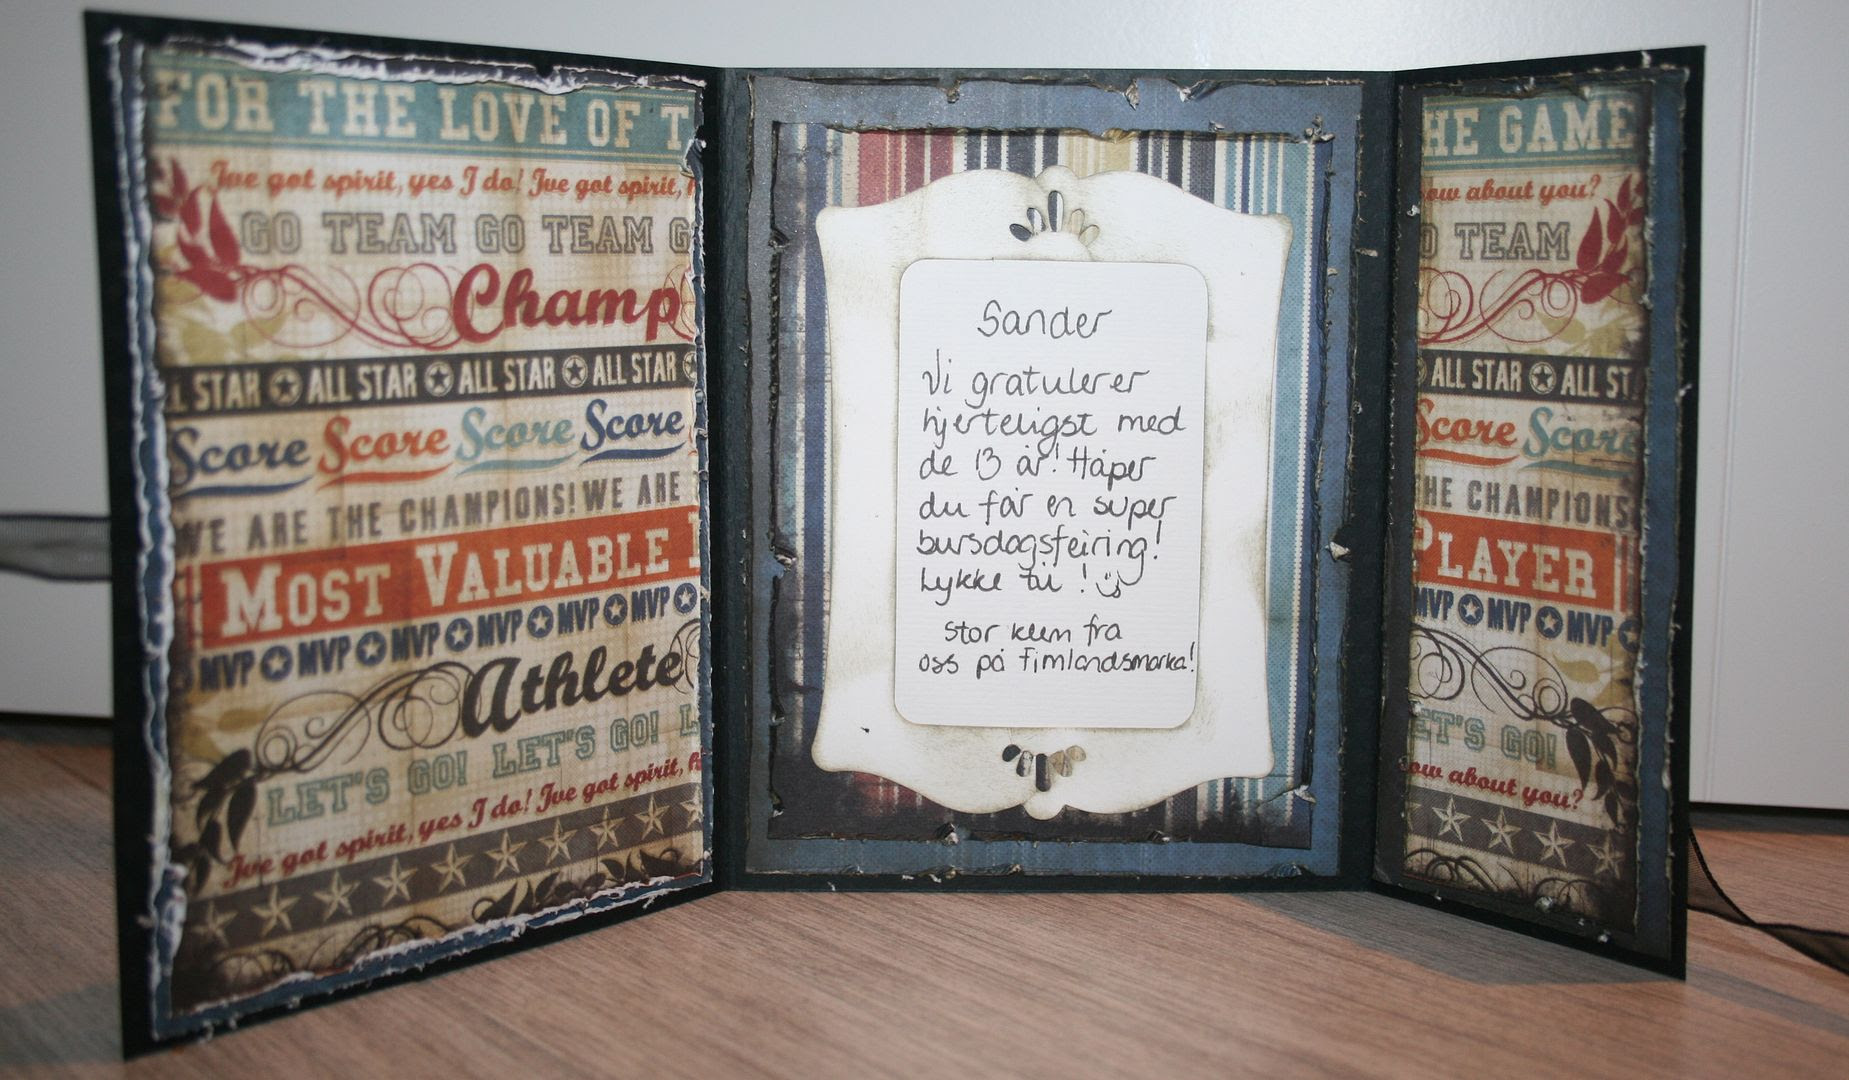 FOR THE LOVE OF T
Ive got spirit, yes I do! Ive got spirit, h
GO TEAM GO TEAM G
Champ
L STAR ALL STAR ALL STAR ALL STAR
Score Score Score Score
WE ARE THE CHAMPIONS! WE ARE
MOST VALUABLE P
MVP MVP MVP MVP MVP MVP
Athlete
LET'S GO! LET'S GO! L
Ive got spirit, yes I do! Ive got spirit, h
Sander
Vi gratulerer
hjerteligst med
de 13 år! Håper
du får en super
bursdagsfeiring!
Lykke til!
Stor klem fra
oss på Fimlandsmarka!
HE GAME
ow about you?
O TEAM
ALL STAR ALL ST
Score Score
HE CHAMPIONS
PLAYER
MVP MVP MVP
ET'S GO!
ow about you?